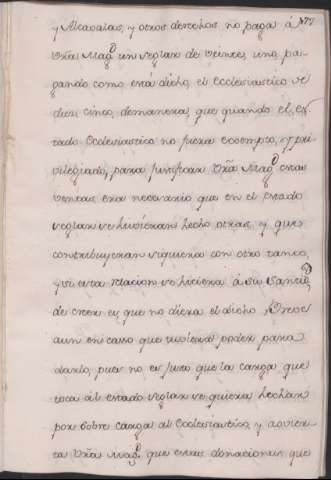 y Alcavalas, y otros derechos no paga á 
Vrã Magd. un seglar de veinte, uno, pa-
gando como está dicho, el Ecclesiastico de
diez, cinco, demanera, que quando el es-
tado Ecclesiastico no fuera exempto, y pri
vilegiado, para justificar Vrã Magd. estas
ventas era necesario que en el estado
seglar se huvieran hecho otras, y que
contribuyeran siquiera con otro tanto,
y si esta relacion se hiciera á Su Santidd.
de creer es, que no diera el dicho Breve
aun en caso que tuviera poder para
darlo, pues no es justo que la carga que
toca al estado seglar se quiera hechar
por sobre carga al Ecclesiastico, y advier-
ta Vrã Magd. que estas donaciones que